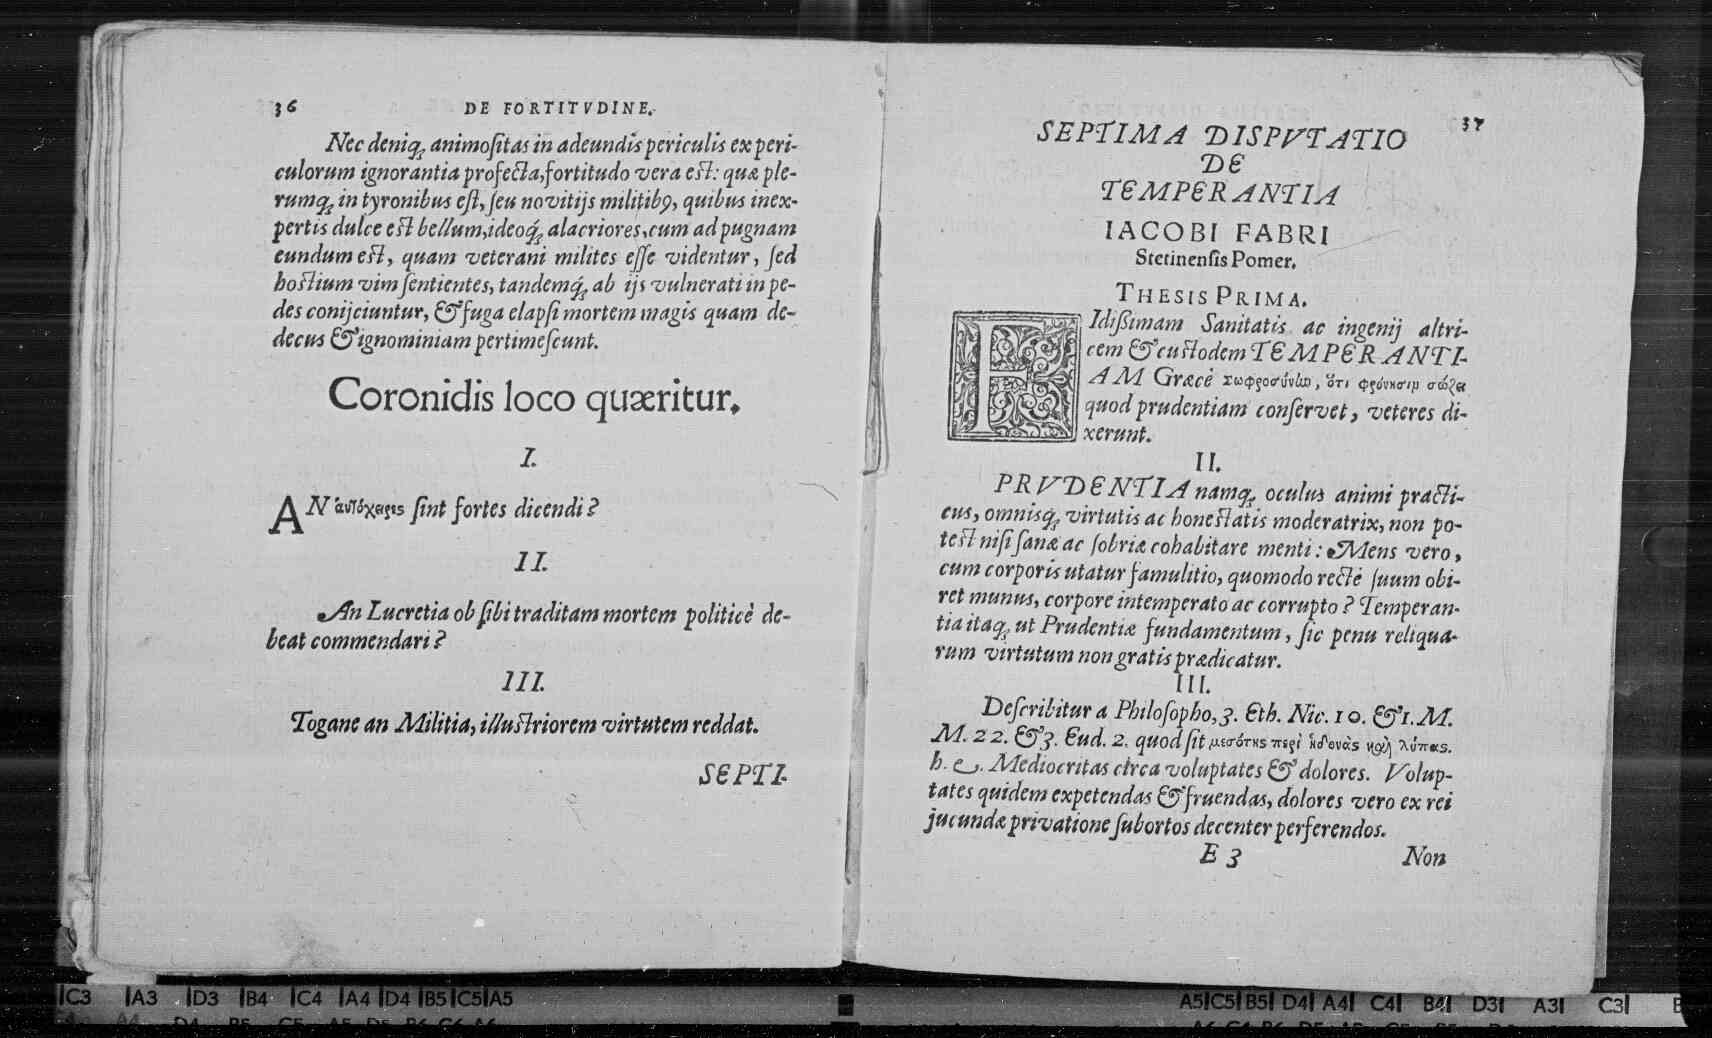 36 DE FORTITVDINE.
Nec deniq; animoſitas in adeundis periculis ex peri-
culorum ignorantia profecta, fortitudo vera est: quæ ple-
rumq; in tyronibus eſt, ſeu novitijs militibꝰ, quibus inex-
pertis dulce est bellum, ideoq́; alacriores, cum ad pugnam
eundum est, quam veterani milites eſſe videntur, ſed
hostium vim ſentientes, tandemq́; ab ijs vulnerati in pe-
des conijciuntur, & fuga elapſi mortem magis quam de-
decus & ignominiam pertimeſcunt.
Coronidis loco quæritur.
I.
AN αὐτόχειρες ſint fortes dicendi?
II.
An Lucretia ob ſibi traditam mortem politicè de-
beat commendari?
III.
Togane an Militia, illustriorem virtutem reddat.
SEPTI-
37
SEPTIMA DISPVTATIO
DE
TEMPERANTIA
IACOBI FABRI
Stetinenſis Pomer.
THESIS PRIMA.
FIdiſsimam Sanitatis ac ingenij altri-
cem & custodem TEMPERANTI-
AM Græcè Σωφροσύνην, ὅτι φρόνησιν σώζει
quod prudentiam conſervet, veteres di-
xerunt.
II.
PRVDENTIA namq; oculus animi practi-
cus, omnisq́; virtutis ac honestatis moderatrix, non po-
test niſi ſanæ ac ſobriæ cohabitare menti: Mens vero,
cum corporis utatur famulitio, quomodo rectè ſuum obi-
ret munus, corpore intemperato ac corrupto? Temperan-
tia itaq; ut Prudentiæ fundamentum, ſic penu reliqua-
rum virtutum non gratis prædicatur.
III.
Deſcribitur a Philoſopho, 3. Eth. Nic. 10. & 1. M.
M. 22. & 3. Eud. 2. quod ſit μεσότης περὶ ἡδονὰς καὶ λύπας.
h. e. Mediocritas circa voluptates & dolores. Volup-
tates quidem expetendas & fruendas, dolores vero ex rei
jucundæ privatione ſubortos decenter perferendos.
E 3 Non
C3 A3 D3 B4 C4 A4 D4 B5 C5 A5
A5 C5 B5 D4 A4 C4 B4 D3 A3 C3